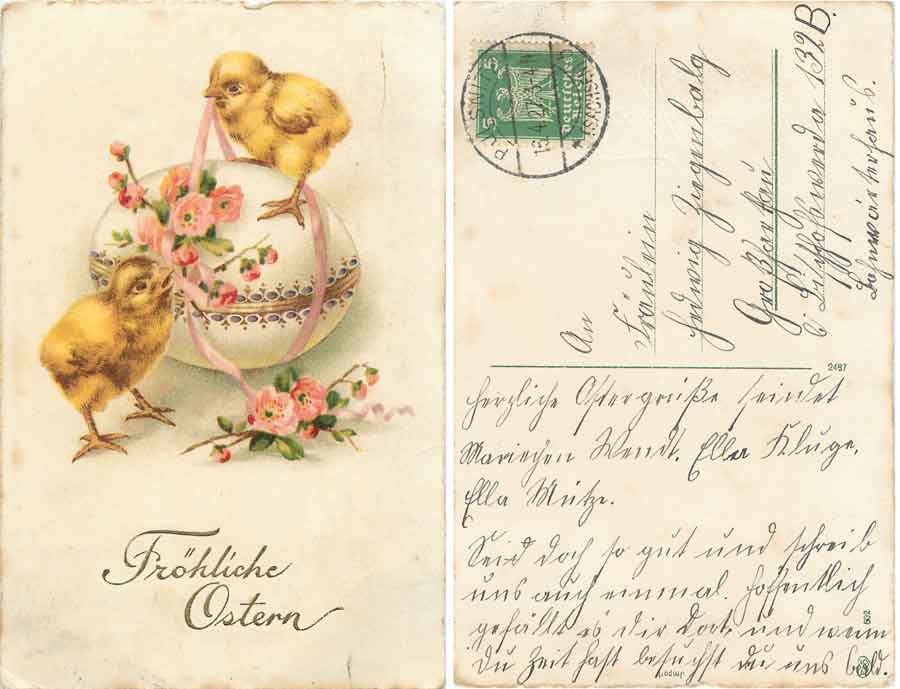 Fröhliche
Ostern
5 5
Deutsches
Reich
An
Fräulein
Hedwig Ziegenbalg
Großharthau
b/ Bischofswerda 132B.
Bahnwärterhaus.
2487
Herzliche Ostergrüße sendet
Mariechen Wendt. Ella Kluge.
Ella Mütze.
Seid doch so gut und schreib
uns auch einmal. Hoffentlich
gefällt es dir dort, und wenn
Du Zeit hast besuchst du uns bald.
502
Import